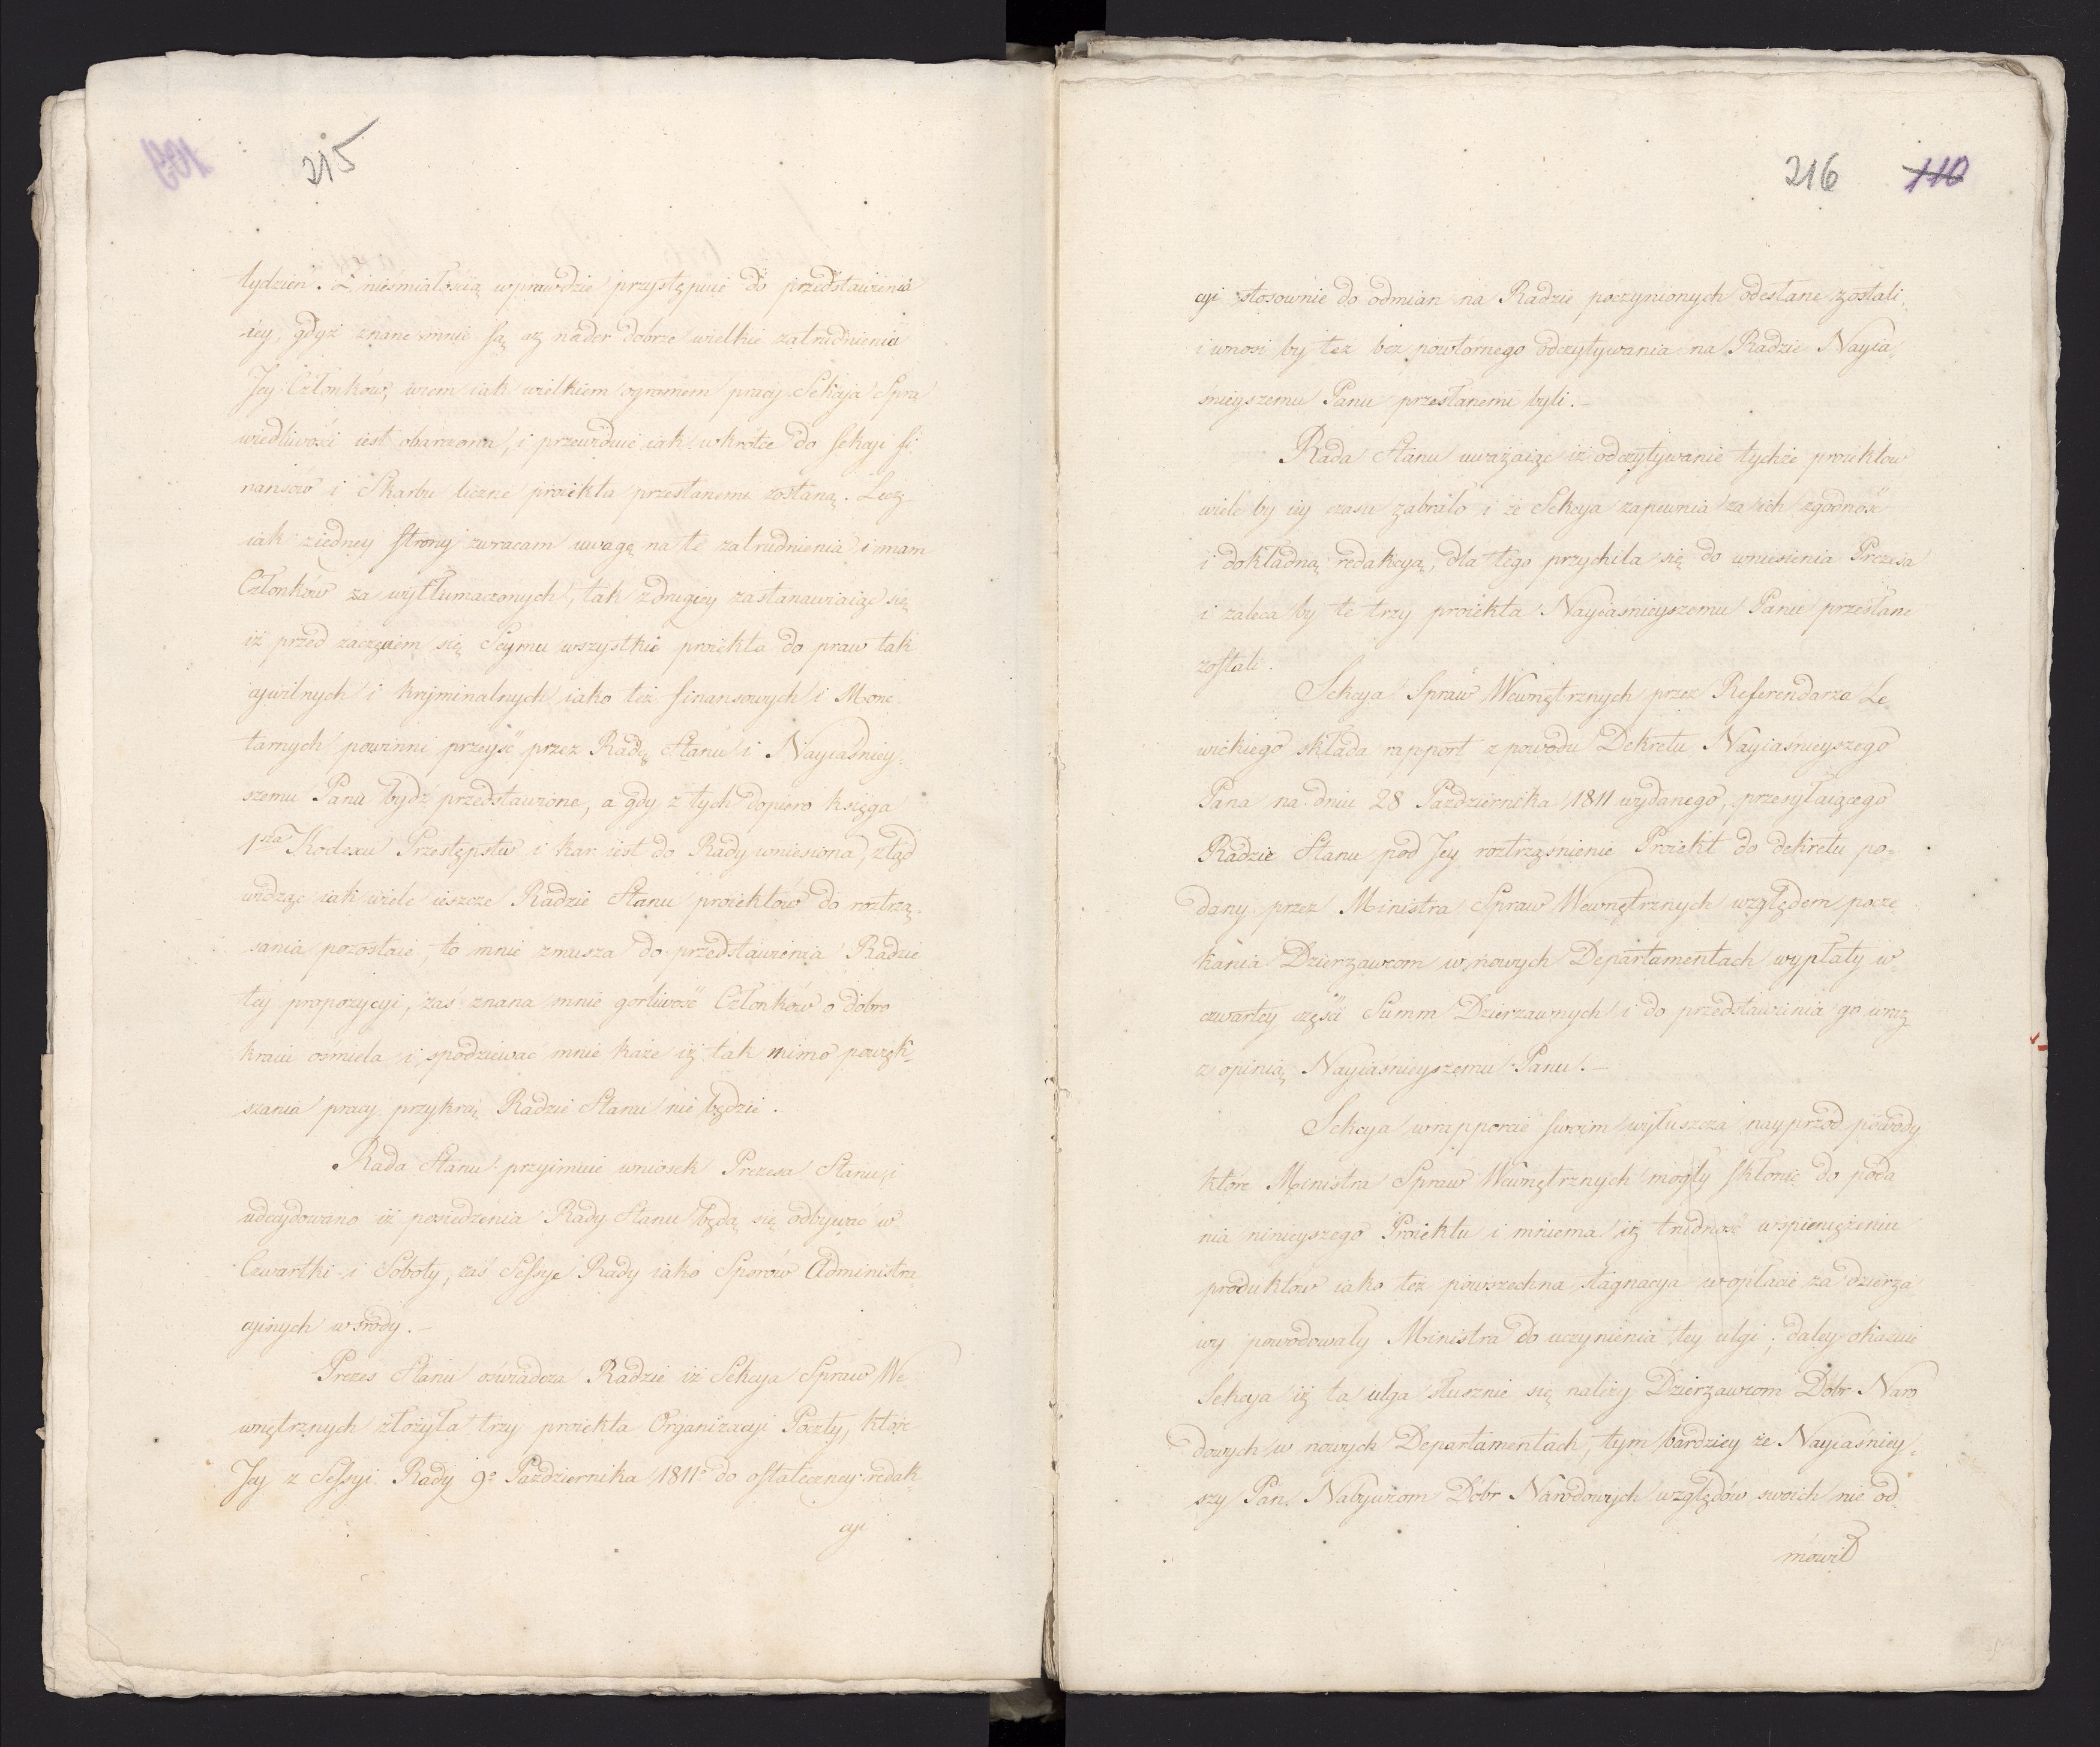 215
tydzień. Z nieśmiałością wprawdzie przystępuię do przedstawienia
iey, gdyż znane mnie są aż nader dobrze wielkie zatrudnienia
Jey Członków, wiem iak wielkiem ogromem pracy Sekcja Spra
wiedliwości iest obarczona, i przewiduię iak wkrótce do Sekcyi fi
nansów i Skarbu liczne proiekta przesłanemi zostaną. Lecz
iak z iedney strony zwracam uwagę na te zatrudnienia i mam
Członków za wytłumaczonych, tak z drugiey zastanawiaiąc się
iż przed zaczęciem się Seymu wszystkie proiekta do praw tak
cywilnych i kryminalnych iako też finansowych i Mone
tarnych powinni przeyść przez Radę Stanu i Nayiaśniey-
szemu Panu bydź przedstawione, a gdy z tych dopiero księga
1sza Kodexu Przestępstw i kar iest do Rady wniesiona, ztąd
widząc iak wiele ieszcze Radzie Stanu proiektów do roztrzą-
sania pozostaie, to mnie zmusza do przedstawienia Radzie
tey propozycyi, zaś znana mnie gorliwość Członków o dobro
kraiu ośmiela i spodziewać mnie każe iż tak mimo powięk-
szania pracy przykrą Radzie Stanu nie będzie.
Rada Stanu przyimuie wniosek Prezesa Stanu, i
udecydowano iż posiedzenia Rady Stanu będą się odbywać w
Czwartki i Soboty, zaś Sessye Rady iako Sporów Administra
cyinych w środy.-
Prezes Stanu oświadcza Radzie iż Sekcya Spraw We
wnętrznych złożyła trzy proiekta Organizacyi Poczty, które
Jey z Sessyi Rady 9o Października 1811o do ostateczney redak
cyi
216 110
cyi stosownie do odmian na Radzie poczynionych odesłane zostali
i wnosi by też bez powtórnego odczytywania na Radzie Nayia-
śnieyszemu Panu przesłanemi byli.-
Rada Stanu uważaiąc iż odczytywanie tychże proiektow
wiele by iey czasu zabrało i że Sekcya zapewnia za ich zgodność
i dokładną redakcyą, dla tego przychila się do wniesienia Prezesa
i zaleca by te trzy proiekta Nayiaśnieyszemu Panu przesłane
zostali.
Sekcya Spraw Wewnętrznych przez Referendarza Le
wickiego składa rapport z powodu Dekretu Nayiaśnieyszego
Pana na dniu 28 Października 1811 wydanego, przesyłaiącego
Radzie Stanu pod Jey roztrząśnienie Proiekt do dekretu po-
dany przez Ministra Spraw Wewnętrznych względem pocze
kania Dzierzawcom w nowych Departamentach wypłaty w
czwartey części Summ Dzierzawnych i do przedstawinia go wraz
z opinią Nayiaśnieyszemu Panu.-
Sekcya w rapporcie swoim wyłuszcza nayprzód powody
które Ministra Spraw Wewnętrznych mogły skłonić do poda
nia ninieyszego Proiektu i mniema iż trudność w spieniężeniu
produktów iako też powszechna stagnacya w opłacie za dzierża
wy powodowały Ministra do uczynienia tey ulgi; daley okazuie
Sekcya iż ta ulga słusznie się należy Dzierzawcom Dóbr Naro
dowych w nowych Departamentach, tym bardziey że Nayiaśniey-
szy Pan Nabywcom Dóbr Narodowych względów swoich nie od-
mówił